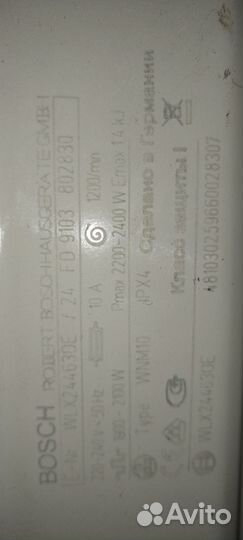 BOSCH ROBERT BOSCH HAUSGERÄTE GMBH
E-Nr. WLX24463OE / 24 FD 9103 802830
220-240 V ~ 50 Hz 10 A 1200/min
1900-2100 W Pmax 2200-2400 W Emax 1.4 kJ
Type WNM10 IPX4 Сделано в Германии
Класс защиты I
WLX24463OE 481030259666028307
Avito